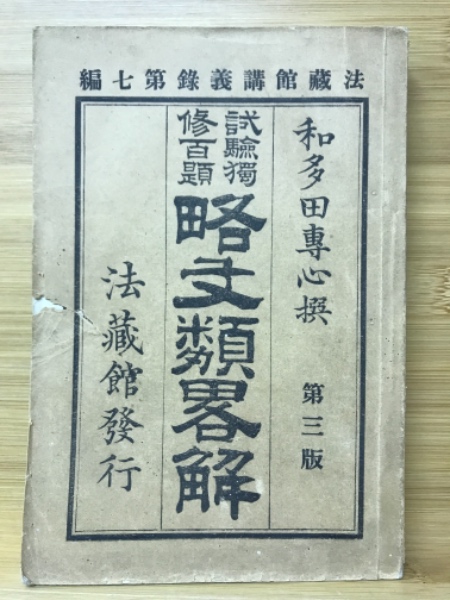 法藏館講義錄第七編
和多田專心撰
第三版
試驗獨
修百題
略文類畧解
法藏館發行